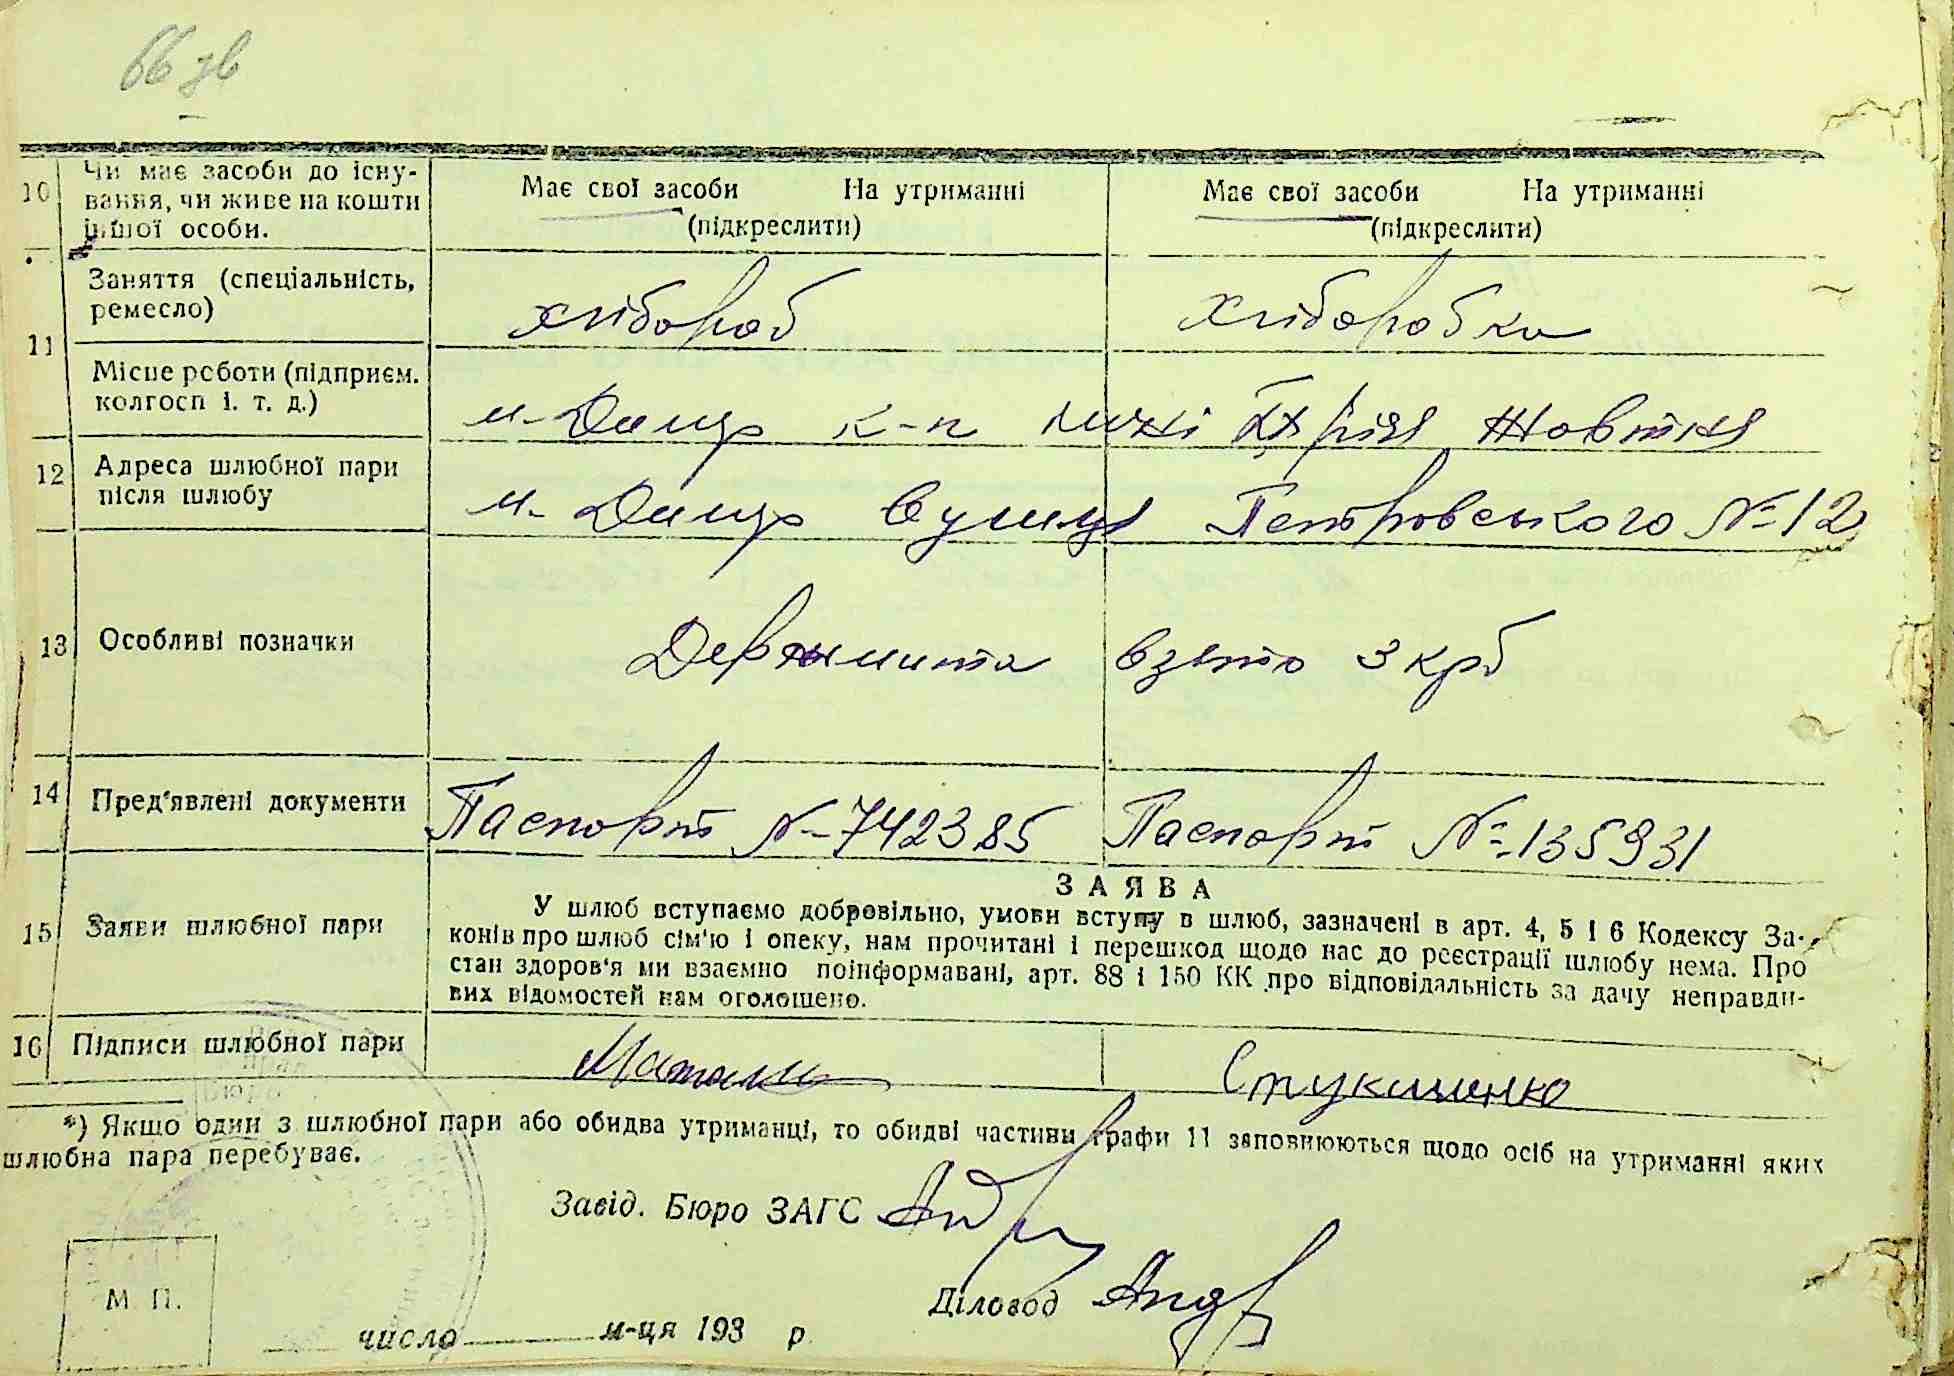 66 зв
10 Чи має засоби до існу-
вання, чи живе на кошти
іншої особи.
Має свої засоби На утриманні
(підкреслити)
Має свої засоби На утриманні
(підкреслити)
11 Заняття (спеціальність,
ремесло)
хлібороб
хліборобка
Місце роботи (підприєм.
колгосп і. т. д.)
м. Димер к-п імені ХХ річя Жовтня
12 Адреса шлюбної пари
після шлюбу
м. Димер вулиця Петровського № 12
13 Особливі позначки
Держмита взято 3 крб
14 Пред'явлені документи
Паспорт № 742385
Паспорт № 135931
15 Заяви шлюбної пари
ЗАЯВА
У шлюб вступаємо добровільно, умови вступу в шлюб, зазначені в арт. 4, 5 і 6 Кодексу За-
конів про шлюб сім'ю і опеку, нам прочитані і перешкод щодо нас до реєстрації шлюбу нема. Про
стан здоров'я ми взаємно поінформавані, арт. 88 і 150 КК про відповідальність за дачу неправди-
вих відомостей нам оголошено.
16 Підписи шлюбної пари
*) Якщо один з шлюбної пари або обидва утриманці, то обидві частини графи 11 заповнюються щодо осіб на утриманні яких
шлюбна пара перебуває.
Завід. Бюро ЗАГС
Діловод
М П.
число м-ця 193 р.